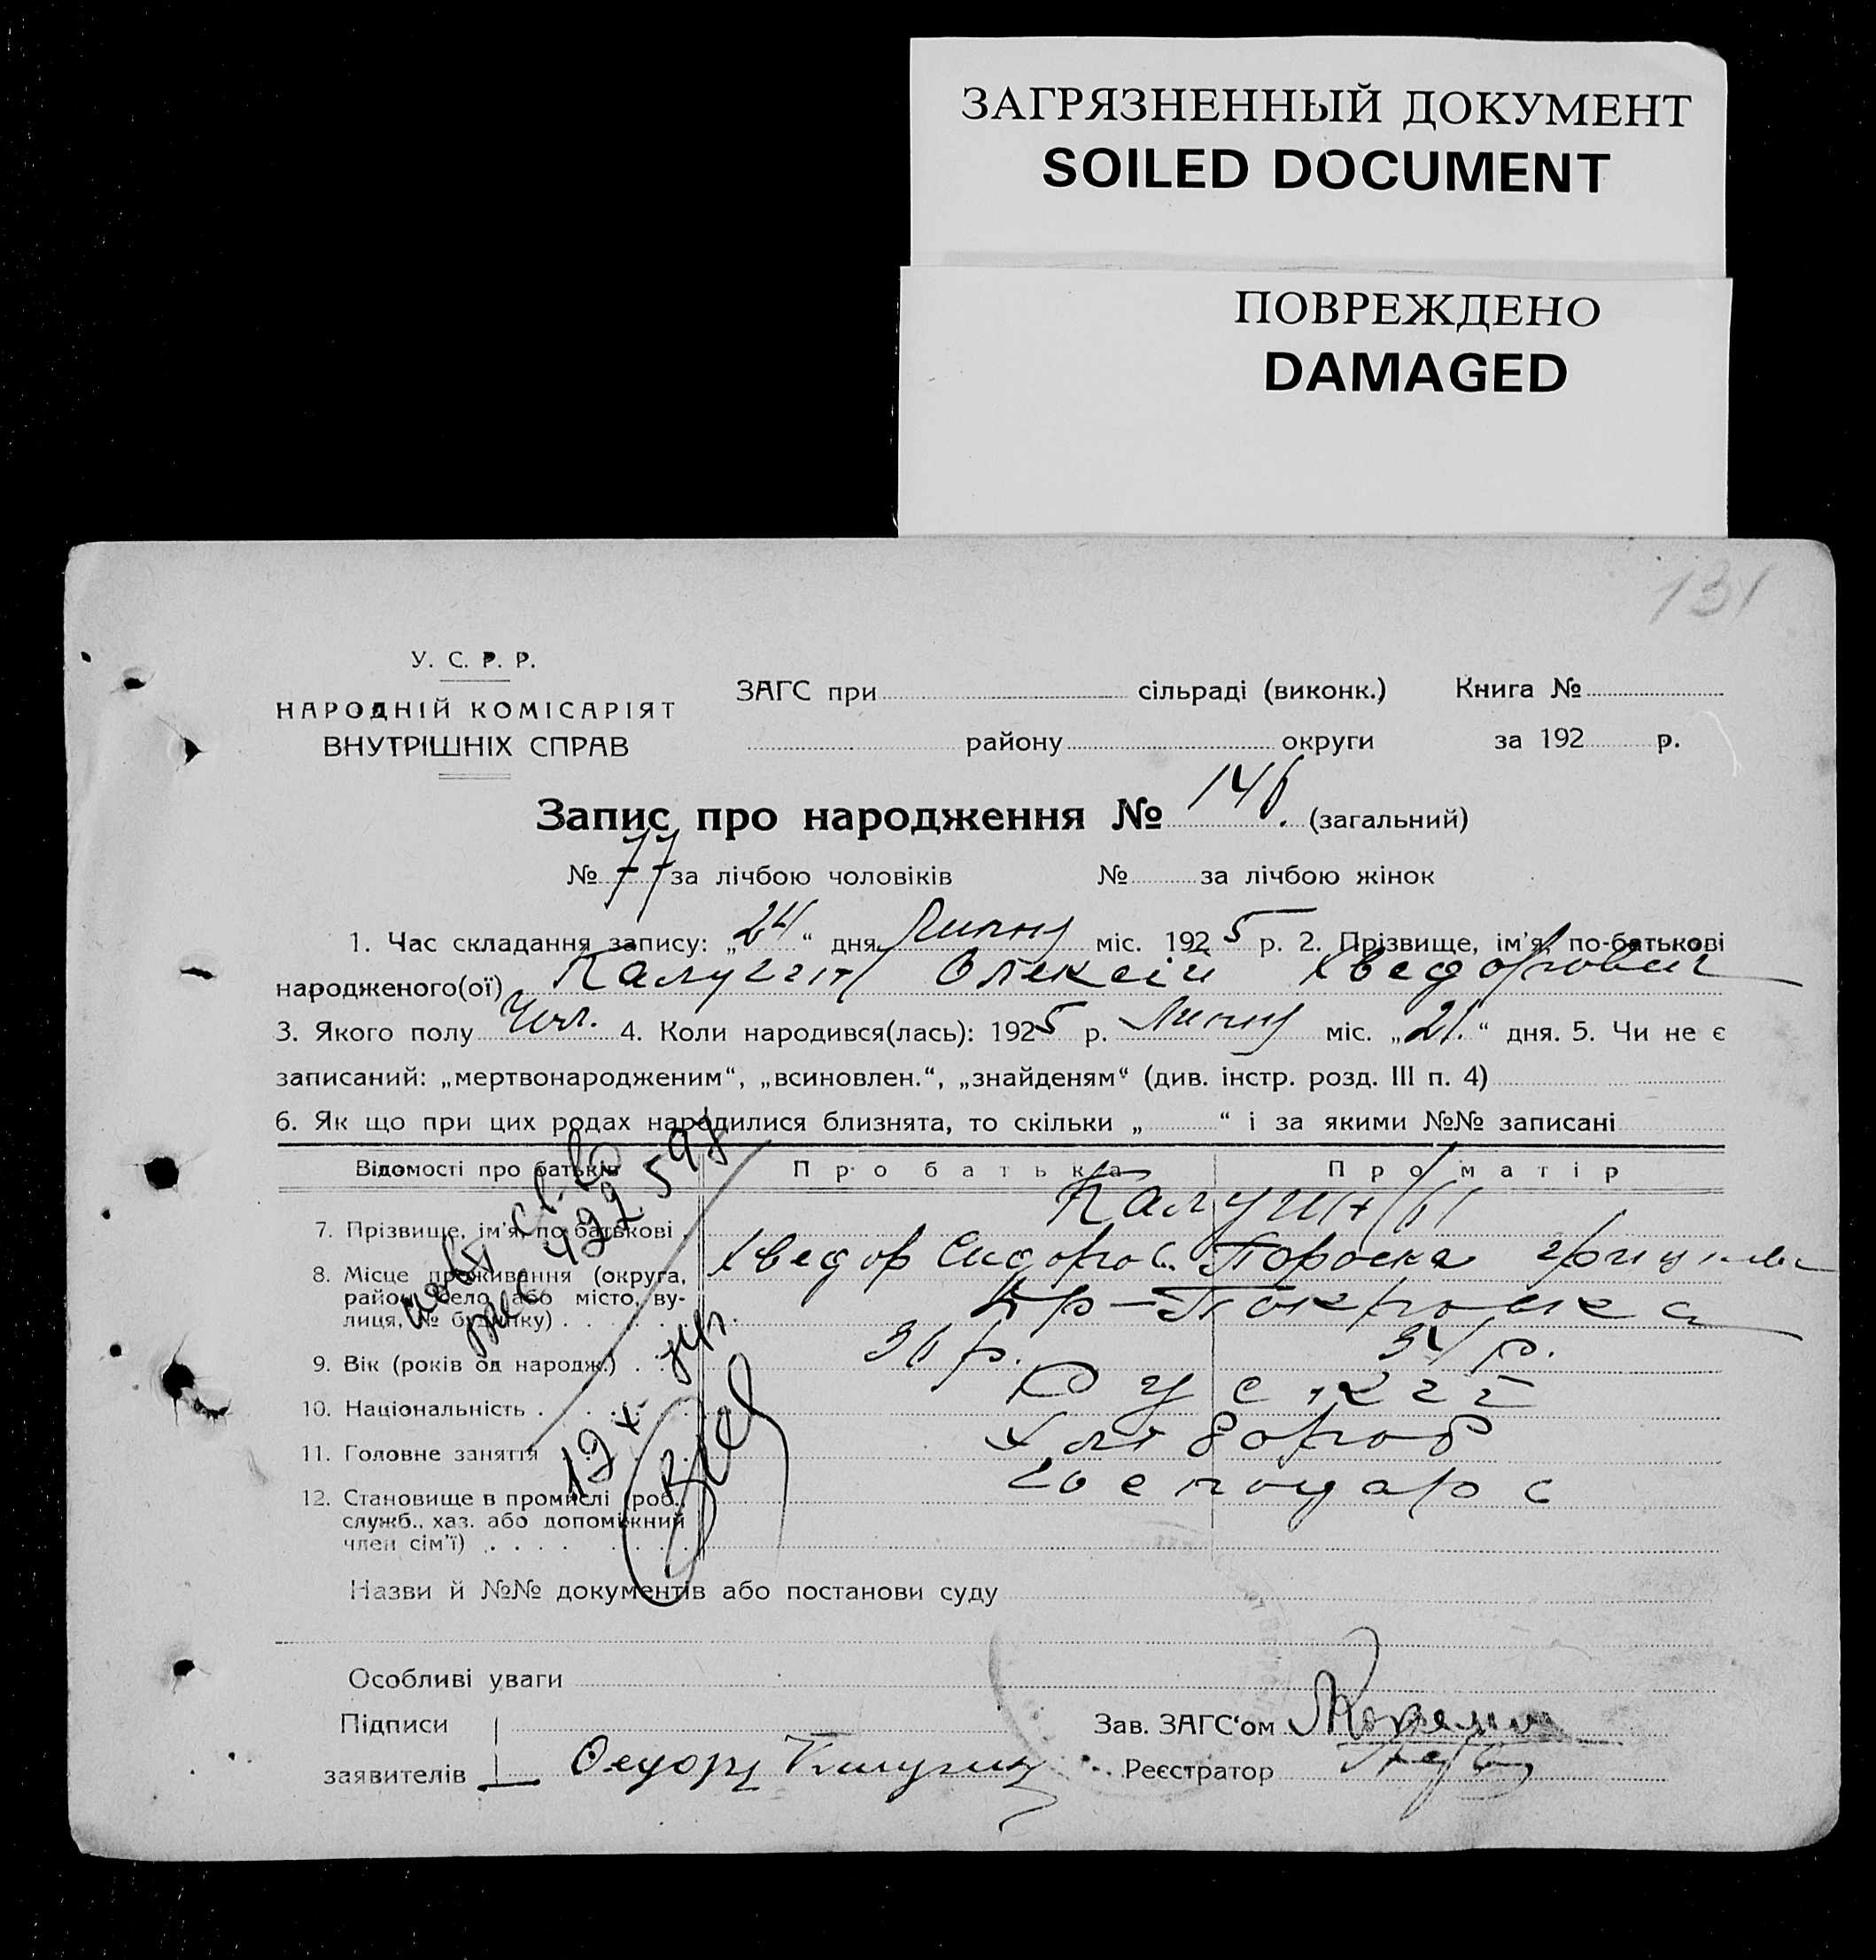 ЗАГРЯЗНЕННЫЙ ДОКУМЕНТ
SOILED DOCUMENT
ПОВРЕЖДЕНО
DAMAGED
131
У. С. Р. Р.
НАРОДНІЙ КОМІСАРІЯТ
ВНУТРІШНІХ СПРАВ
ЗАГС при сільраді (виконк.) Книга №
району округи за 192 р.
Запис про народження № 146. (загальний)
№ 77 за лічбою чоловіків № за лічбою жінок
1. Час складання запису: „24“ дня Липня міс. 1925 р. 2. Прізвище, ім'я, по-батькові
народженого(ої) Калугін Олексій Хведорович
3. Якого полу Чол. 4. Коли народився(лась): 1925 р. Липня міс. „21.“ дня. 5. Чи не є
записаний: „мертвонародженим“, „всиновлен.“, „знайденям“ (див. інстр. розд. III п. 4)
6. Як що при цих родах народилися близнята, то скільки „ “ і за якими №№ записані
Відомості про батьків Про батька Про матір
7. Прізвище, ім'я, по-батькові Калугин
Хведор Сидоров.
8. Місце проживання (округа, район, село або місто, вулиця, № будинку) Кр-Покровка
9. Вік (років од народж.) 36 р. 34 р.
10. Національність Руські
11. Головне заняття Хлібороб
12. Становище в промислі (роб., служб., хаз. або допоміжний член сім'ї) Господарс
Назви й №№ документів або постанови суду
Особливі уваги
Підписи Зав. ЗАГС‘ом
заявителів Федоръ Калугин Реєстратор